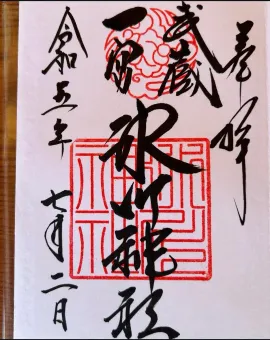 奉拝
武蔵
一宮
氷川神社
令和五年
七月二日